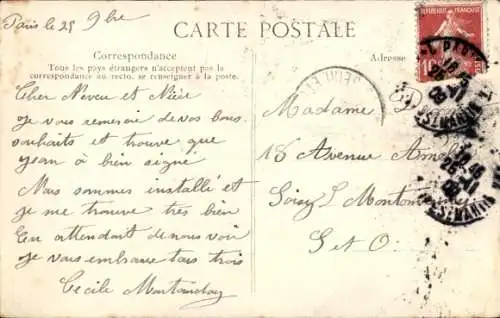 Paris le 25 9bre
CARTE POSTALE
Correspondance
Tous les pays étrangers n'acceptent pas la
correspondance au recto, se renseigner à la poste.
Adresse
REPUBLIQUE FRANÇAISE
10
Cher Neveu et Nièce
Je vous remercie de vos bons
souhaits et trouve que
Jean à bien signé
Nous sommes installé et
je me trouve très bien
En attendant de nous voir
Je vous embrasse tous trois
Cecile
Madame
18 Avenue
Soisy S Montmorency
S et O